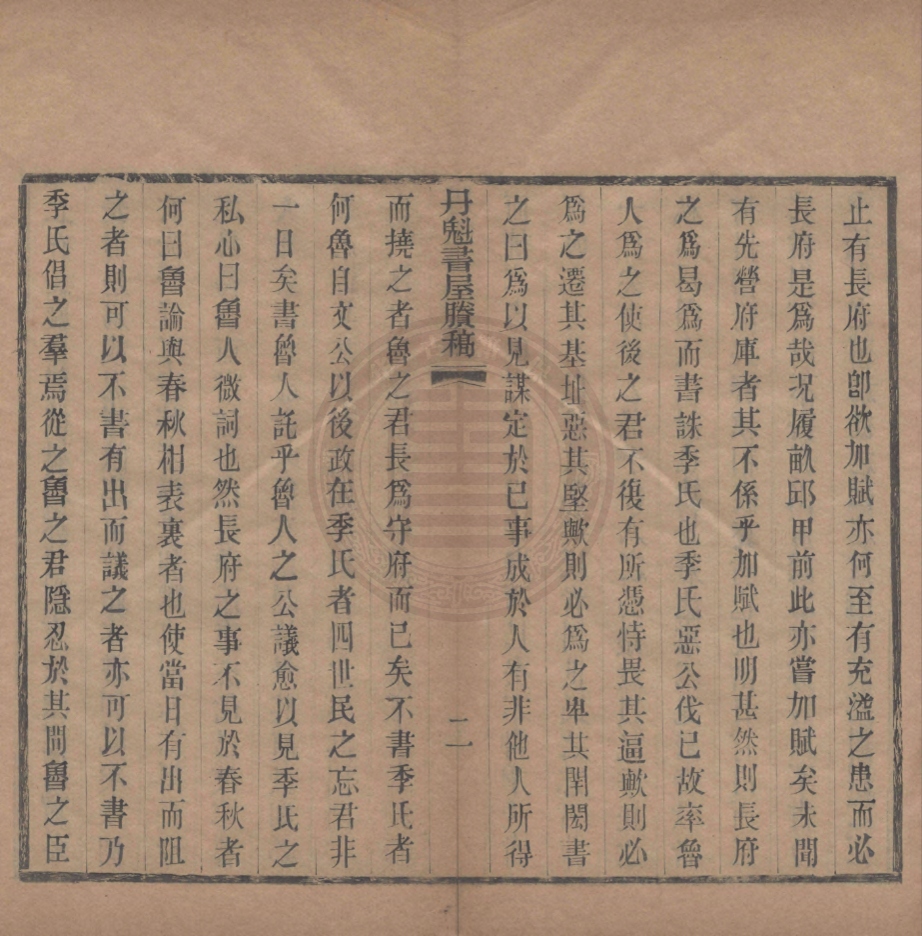 止有長府也卽欲加賦亦何至有充溢之患而必
長府是爲哉况履畝邱甲前此亦嘗加賦矣未聞
有先營府庫者其不係乎加賦也明甚然則長府
之爲曷爲而書誅季氏也季氏惡公伐已故率魯
人爲之使後之君不復有所憑恃畏其逼歟則必
爲之遷其基址惡其堅歟則必爲之卑其閈閎書
之曰爲以見謀定於已事成於人有非他人所得
丹魁書屋賸稿
二
而撓之者魯之君長爲守府而已矣不書季氏者
何魯自文公以後政在季氏者四世民之忘君非
一日矣書魯人託乎魯人之公議愈以見季氏之
私心曰魯人微詞也然長府之事不見於春秋者
何曰魯論與春秋相表裏者也使當日有出而阻
之者則可以不書有出而議之者亦可以不書乃
季氏倡之羣焉從之魯之君隱忍於其間魯之臣